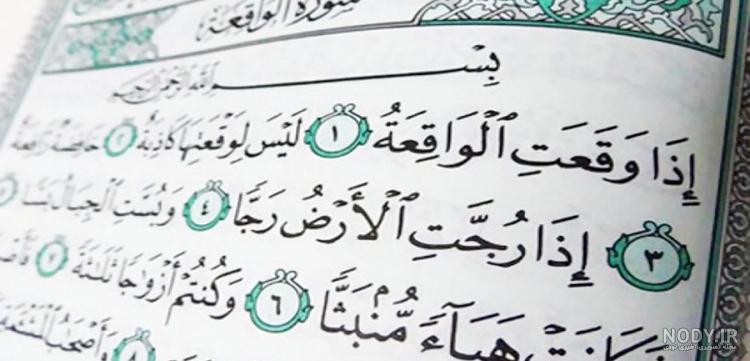 سورة الواقعة
بسم الله الرحمن الرحيم
إِذَا وَقَعَتِ ٱلْوَاقِعَةُ ١ لَيْسَ لِوَقْعَتِهَا كَاذِبَةٌ ٢ خَافِضَةٌ رَّافِعَةٌ
٣ إِذَا رُجَّتِ ٱلْأَرْضُ رَجًّا ٤ وَبُسَّتِ ٱلْجِبَالُ بَسًّا ٥
هَبَآءً مُّنۢبَثًّا ٦ وَكُنتُمْ أَزْوَٰجًا ثَلَٰثَةً ٧
٨ وَأَصْحَٰبُ
NODY.IR